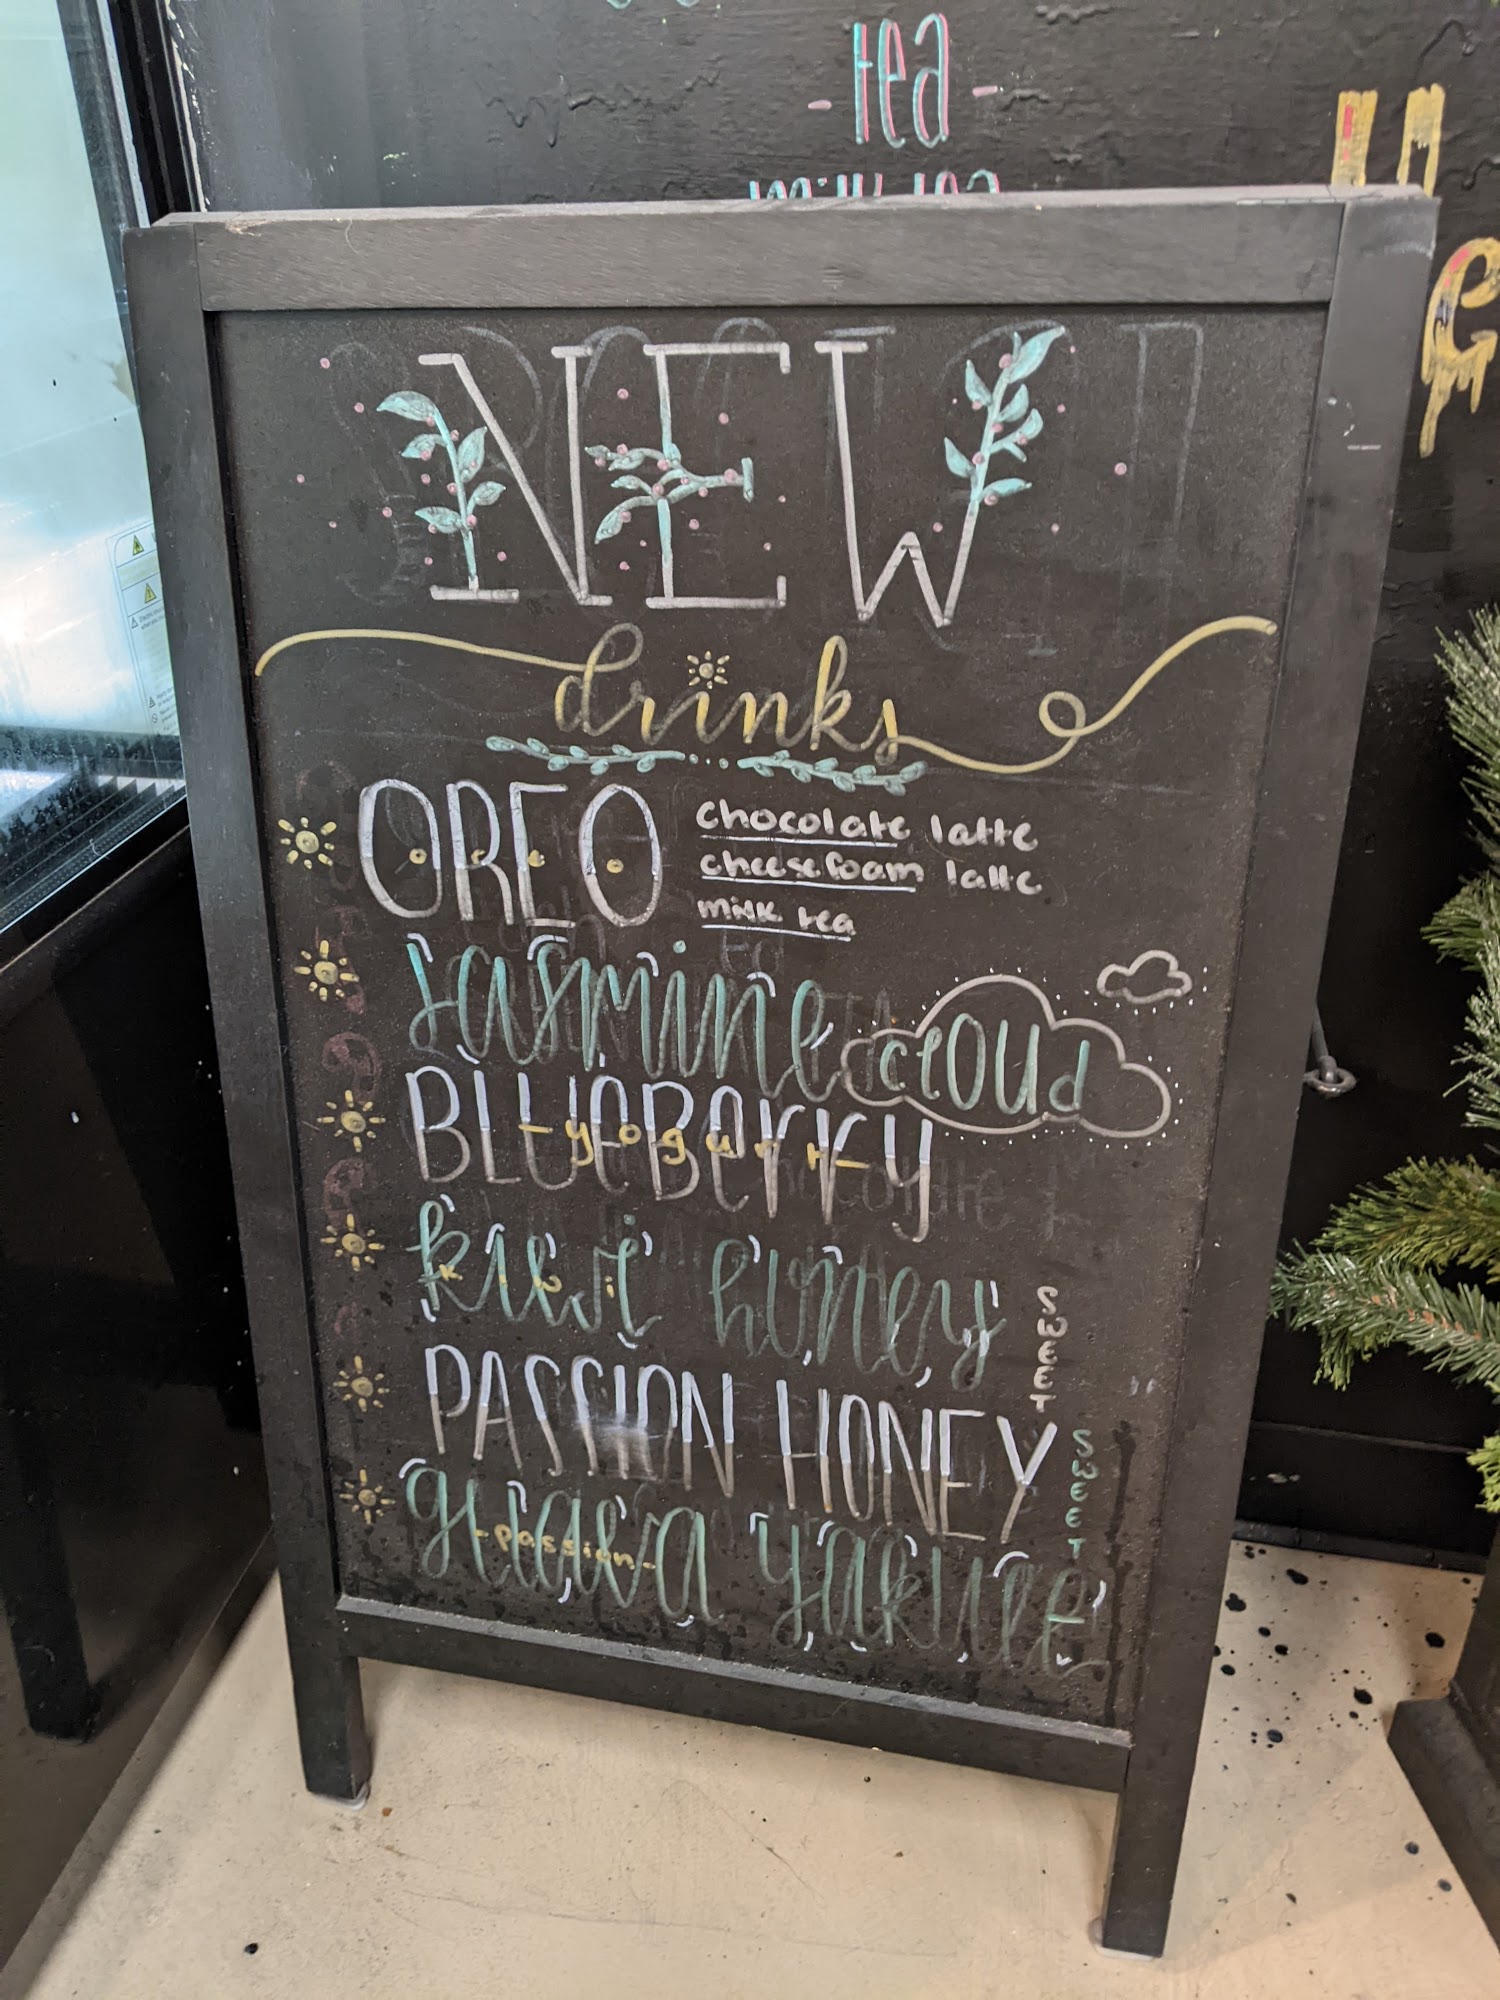 - tea -
milk tea
NEW
drinks
OREO
oreo
chocolate latte
cheesefoam latte
milk tea
Jasmine cloud
BLUEBerry
- yogurt -
kiwi honey
kiwi
SWEET
PASSION HONEY
SWEET
guava yakult
- passion -